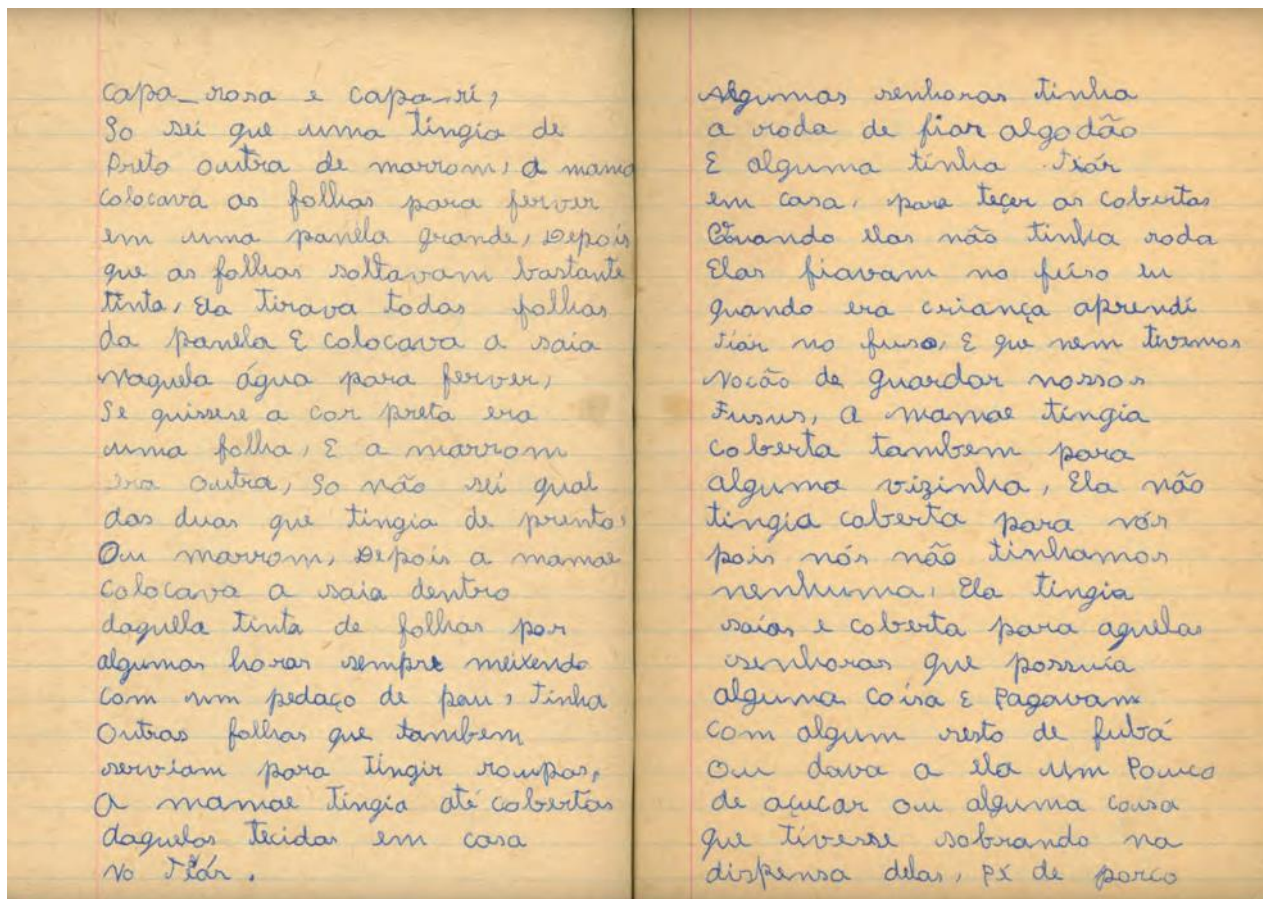 capa-rosa e capa-ri,
So sei que uma tingia de
Preto outra de marrom, a mama
colocava as folhas para ferver
em uma panela grande, Depois
que as folhas soltavam bastante
tinta, Ela Tirava todas folhas
da panela E colocava a saia
Naquela água para ferver,
Se quissese a cor preta era
uma folha, E a marrom
era outra, So não sei qual
das duas que tingia de prento,
Ou marrom, Depois a mamae
colocava a saia dentro
daquella tinta de folhas por
algumas horas sempre meixendo
com um pedaço de pau, Tinha
Outras folhas que tambem
serviam para tingir roupas,
A mamae tingia até cobertas
daquelas tecidas em casa
No Teár.
Algumas senhoras tinha
a roda de fiar algodão
E alguma tinha Teár
em casa, para teçer as cobertas
Quando elas não tinha roda
Elas fiavam no fuso eu
quando era criança aprendi
fiár no fuso, E que nem tivemos
Nocão de guardar nossos
Fusus, a mamae tingia
coberta tambem para
alguma vizinha, Ela não
tingia coberta para nós
pois nós não tinhamos
nenhuma, Ela tingia
saias e coberta para aquelas
senhoras que possuia
alguma coisa E Pagavam
com algum resto de fubá
Ou dava a ela um Pouco
de açucar ou alguma cousa
que tivesse sobrando na
dispensa delas, px de porco